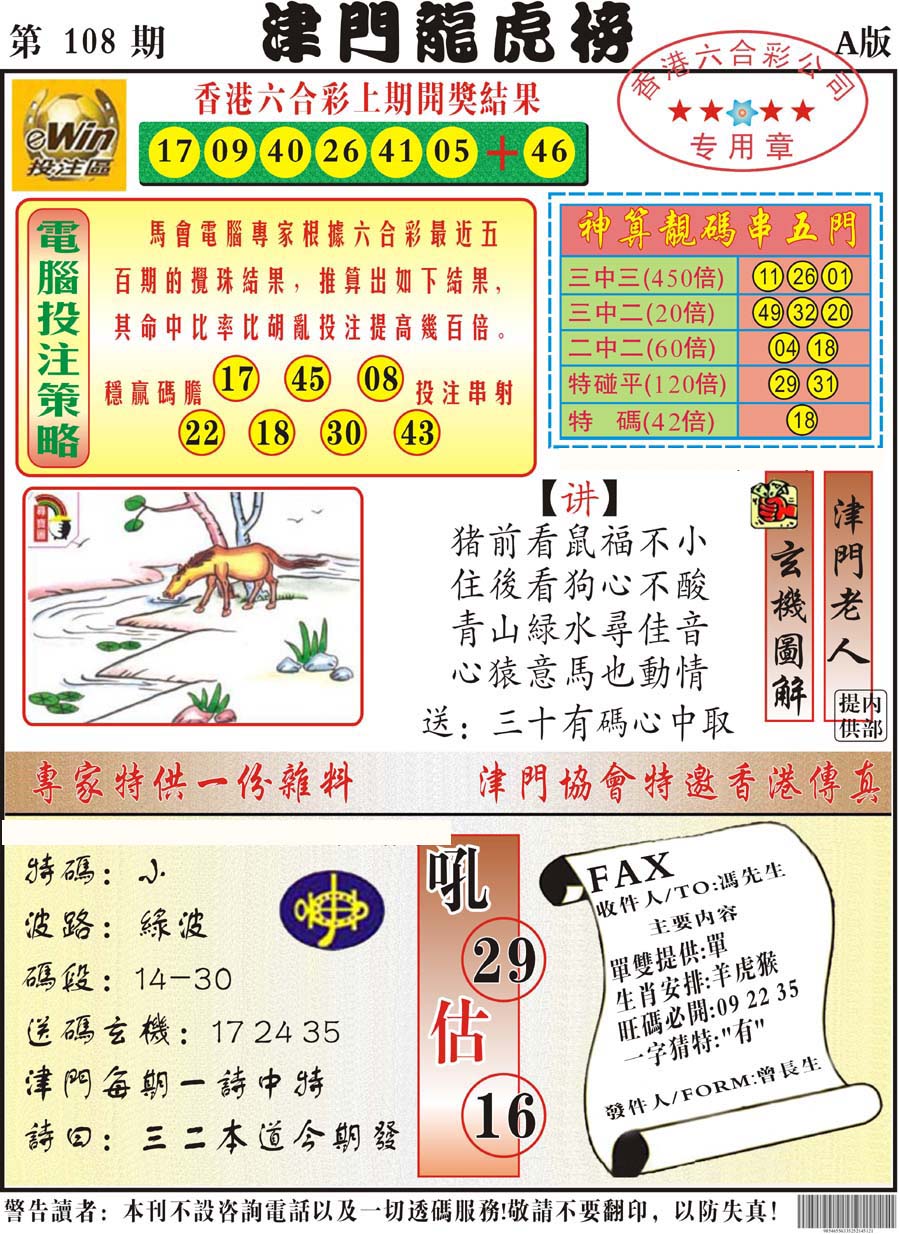 第 108 期
津門龍虎榜
A版
香港六合彩公司
专用章
eWin
投注區
香港六合彩上期開獎結果
17 09 40 26 41 05 + 46
電腦投注策略
馬會電腦專家根據六合彩最近五
百期的攪珠結果，推算出如下結果，
其命中比率比胡亂投注提高幾百倍。
穩贏碼膽 17 45 08 投注串射
22 18 30 43
神算靚碼串五門
三中三(450倍) 11 26 01
三中二(20倍) 49 32 20
二中二(60倍) 04 18
特碰平(120倍) 29 31
特 碼(42倍) 18
尋寶圖
【讲】
猪前看鼠福不小
住後看狗心不酸
青山緑水尋佳音
心猿意馬也動情
送：三十有碼心中取
玄機圖解
津門老人
内部提供
專家特供一份雜料
津門協會特邀香港傳真
特碼：小
波路：綠波
碼段：14-30
送碼玄機：17 24 35
津門每期一詩中特
詩曰：三二本道今期發
吼
29
估
16
FAX
收件人/TO:馮先生
主要内容
單雙提供:單
生肖安排:羊虎猴
旺碼必開:09 22 35
一字猜特:"有"
發件人/FORM:曾長生
警告讀者：本刊不設咨詢電話以及一切透碼服務!敬請不要翻印，以防失真!